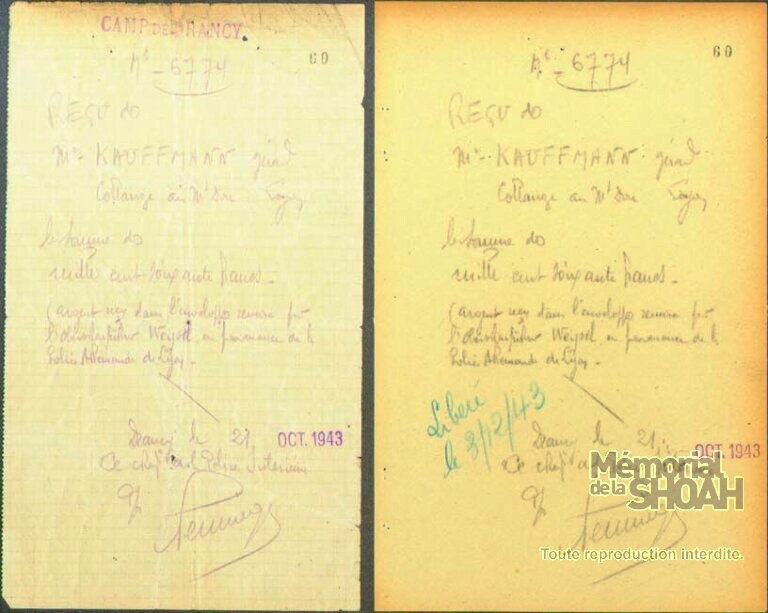 CAMP DE DRANCY
60
Nº - 6774
REÇU de
Mr KAUFFMANN gérard
Collange au Mt Dore
la somme de
mille cent soixante francs -
(argent reçu dans l'enveloppe remise par
l'Oberscharführer Weysel, en provenance de la
Police Allemande de Lyon -
Drancy le 21. OCT. 1943
Ce chef Police Intérieure
60
Nº - 6774
REÇU de
Mr - KAUFFMANN gérard
Collange au Mt Dore
la somme de
mille cent soixante francs -
(argent reçu dans l'enveloppe remise par
l'Oberscharführer Weysel, en provenance de la
Police Allemande de Lyon -
Libéré
le 3/12/43
Drancy le 21. OCT. 1943
Ce chef
Mémorial
de la SHOAH
Toute reproduction interdite.